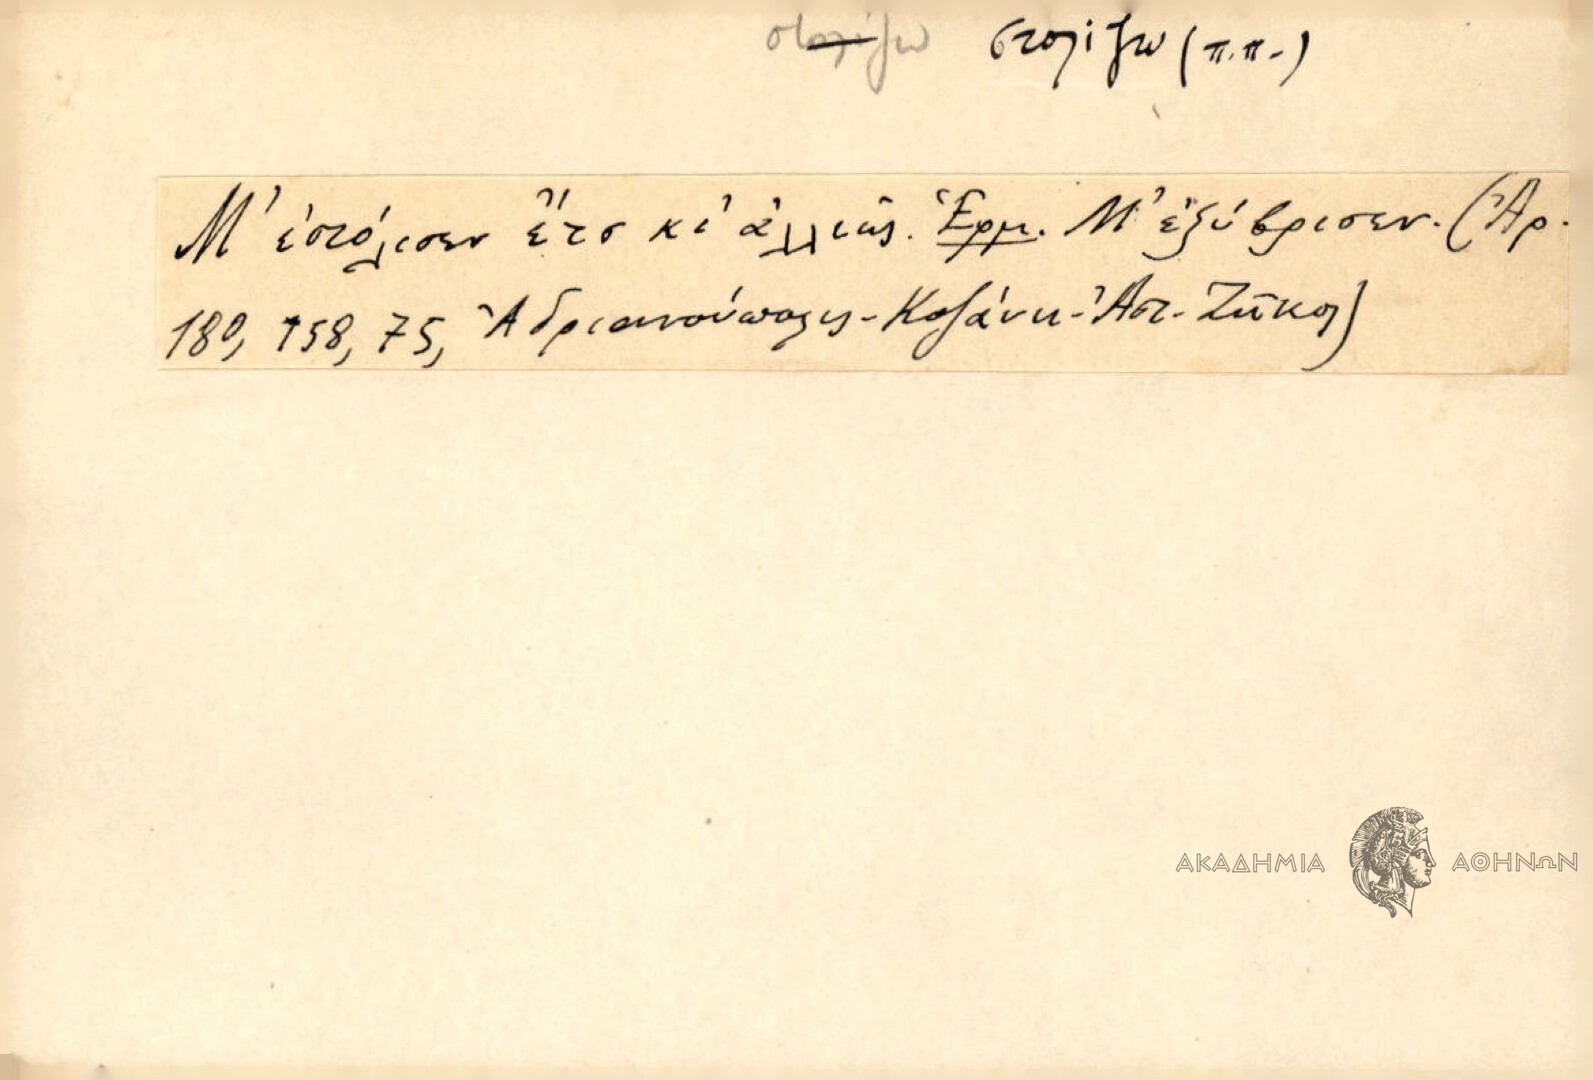 στολίζω στολίζω (π.π.)
Μ' ἐστόλισεν ἔτσ κι ἀλλιῶς. Ἑρμ. Μ' ἐξύβρισεν. (Ἀρ.
180, 158, 75, Ἀδριανούπολις - Κοζάνη - Ἀστ.
ΑΚΑΔΗΜΙΑ ΑΘΗΝΩΝ